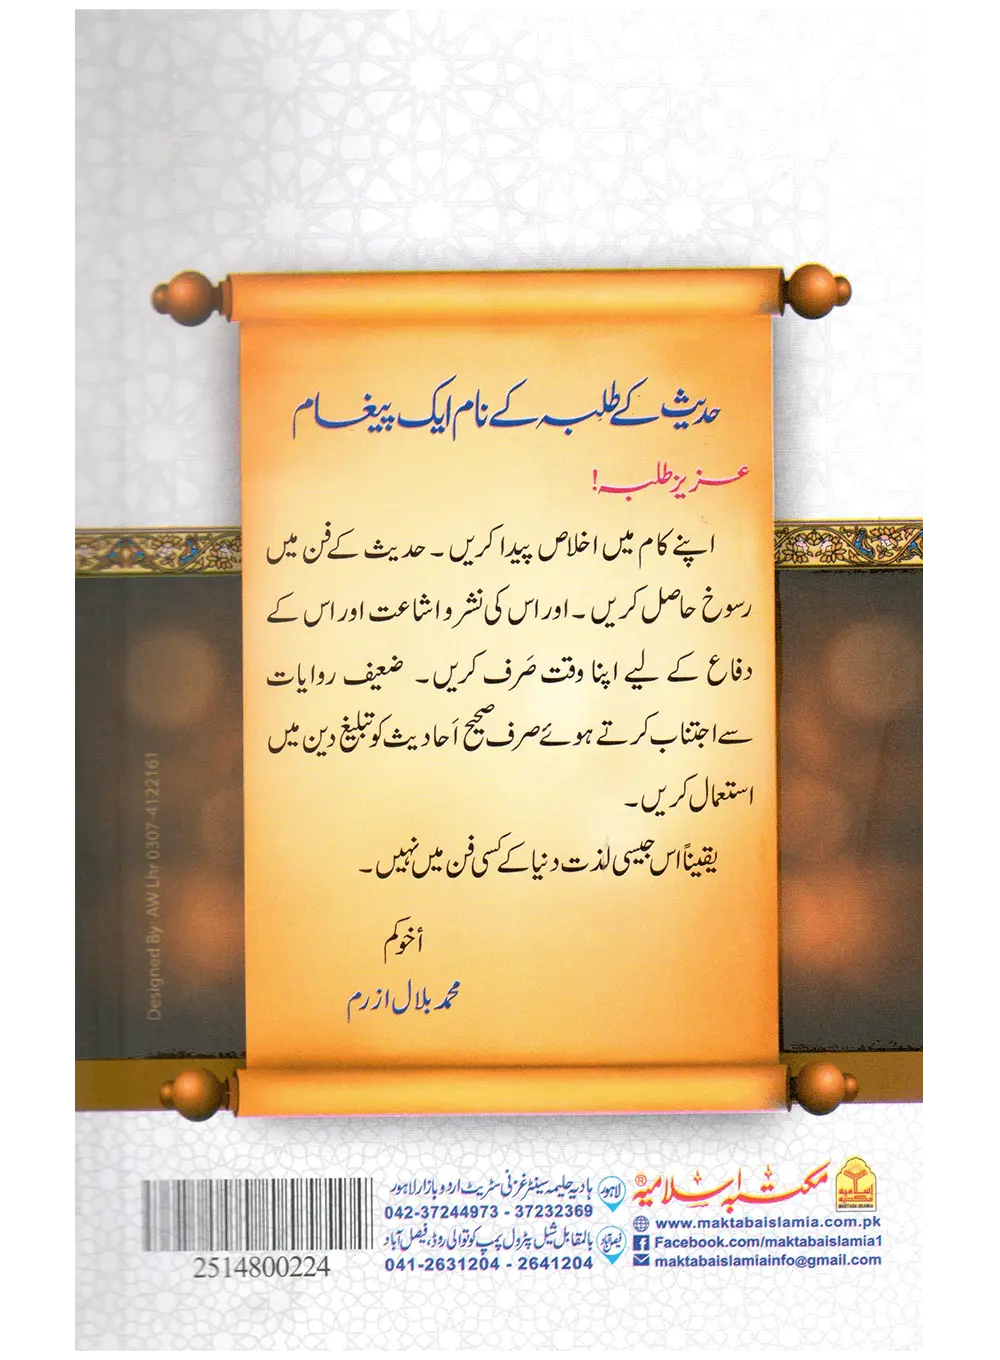 حدیث کے طلبہ کے نام ایک پیغام
عزیز طلبہ!
اپنے کام میں اخلاص پیدا کریں۔ حدیث کے فن میں
رسوخ حاصل کریں۔ اور اس کی نشر و اشاعت اور اس کے
دفاع کے لیے اپنا وقت صَرف کریں۔ ضعیف روایات
سے اجتناب کرتے ہوئے صرف صحیح اَحادیث کو تبلیغ دین میں
استعمال کریں۔
یقیناً اس جیسی لذت دنیا کے کسی فن میں نہیں۔
أخوکم
محمد بلال ازرم
Designed By: AW Lhr 0307-4122161
مکتبہ اسلامیہ®
اسلامیہ
مکتبہ
MAKTABA ISLAMIA
www.maktabaislamia.com.pk
Facebook.com/maktabaislamia1
maktabaislamiainfo@gmail.com
لاہور ہادیہ حلیمہ سینٹر غزنی سٹریٹ اردو بازار لاہور
042-37244973 - 37232369
فیصل آباد بالمقابل شیل پٹرول پمپ کوتوالی روڈ، فیصل آباد
041-2631204 - 2641204
2514800224